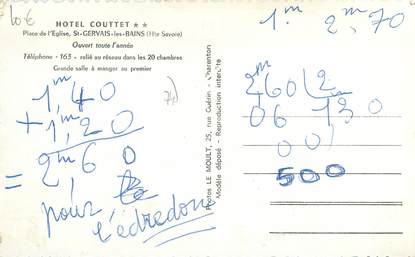 10€
HOTEL COUTTET ★★
Place de l'Eglise, St-GERVAIS-les-BAINS (Hte Savoie)
Ouvert toute l'année
Téléphone - 165 - relié au réseau dans les 20 chambres
Grande salle à manger au premier
1m,40
+ 1m,20
= 2m,60
pour
l'édredon
Photos LE MOULT, 25, rue Guérin - Charenton
Modèle déposé - Reproduction interdite
1.m 2m,70
2m60 2
06 130
00
500